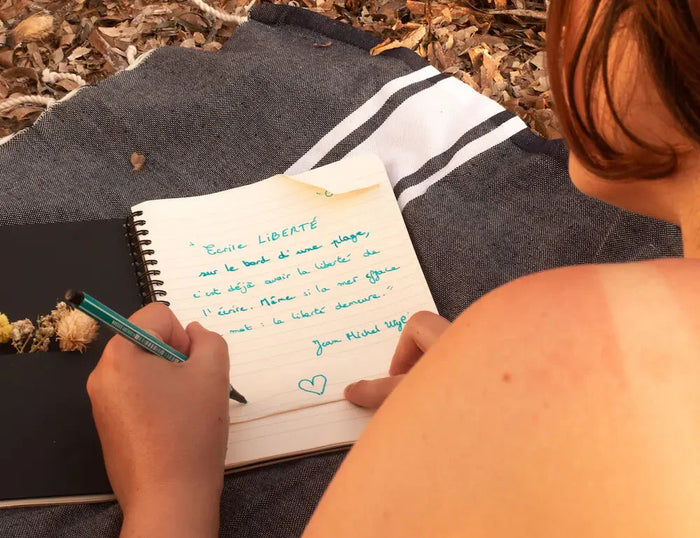 " Ecrire LIBERTÉ
sur le bord d'une plage,
c'est déjà avoir la liberté de
l'écrire. Même si la mer efface
ce mot : la liberté demeure."
Jean Michel